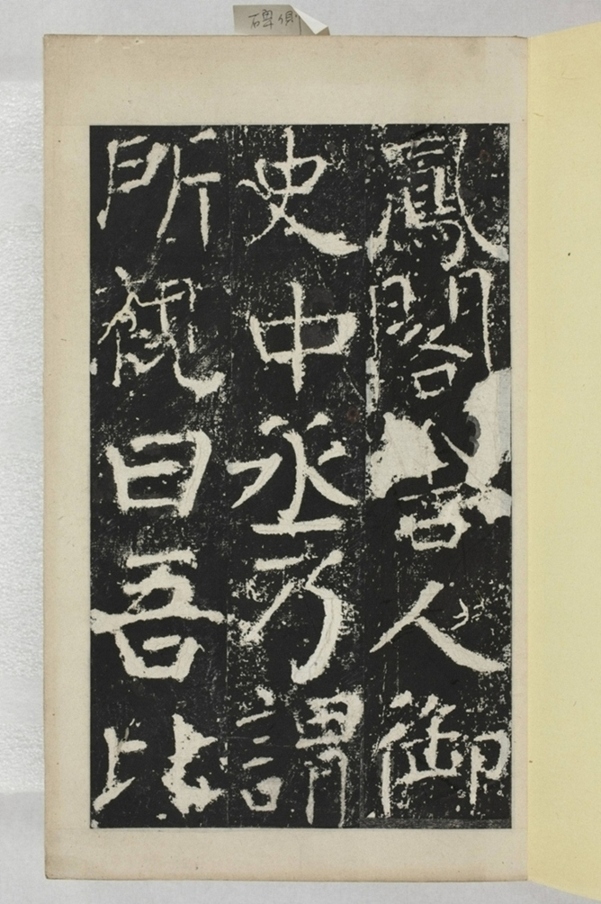 碑側
鳳閣舍人御
史中丞乃謂
所親曰吾比